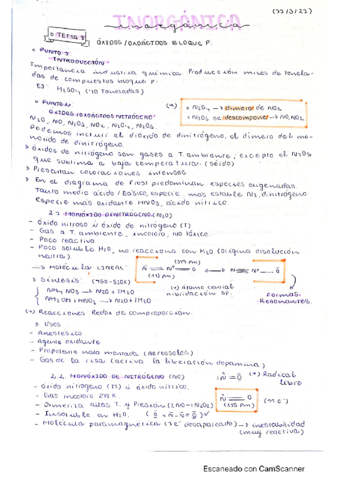 (22/3/23)
INORGÁNICA
inorgánica
TEMA 8
ÓXIDOS/OXOÁCIDOS BLOQUE P.
* PUNTO 1
INTRODUCCIÓN
Importancia industria química. Producción miles de toneladas
de compuestos bloque p.
EJ H₂SO₄ (70 Toneladas)
* PUNTO 2:
ÓXIDOS/OXOÁCIDOS NITRÓGENO
N₂O, NO, N₂O₃, NO₂, N₂O₄, N₂O₅
Podemos incluir el dióxido de dinitrógeno, el dímero del monóxido
de dinitrógeno.
(*)
N₂O₄ → dímero de NO₂
N₂O₃ se descompone → NO, NO₂
> Óxidos de nitrógeno son gases a T ambiente, excepto el N₂O₅
que sublima a baja temperatura (sólido)
> Presentan coloraciones intensas
> En el diagrama de Frost predominan especies oxigenadas.
Tanto medio ácido/básico, especie más estable N₂, dinitrógeno
Especie más oxidante HNO₃, ácido nítrico.
2.1 MONÓXIDO DE DINITRÓGENO (N₂O)
- Óxido nitroso u óxido de nitrógeno (I)
- Gas a T ambiente, incoloro, no tóxico.
- Poco reactivo
- Poco soluble H₂O, no reacciona con H₂O (origina disolución
neutra)
→ Molécula lineal
(*) Átomo central
hibridación sp.
Formas
Resonantes.
> Síntesis:
NH₄NO₃ → N₂O + 2H₂O
(*) Reacciones Redox de comproporción.
> Usos
- Anestésico
- Agente oxidante
- Propelente nata montada (Aerosoles)
- Gas de la risa (activa la liberación dopamina)
2.2. MONÓXIDO DE NITRÓGENO (NO)
(*) Radical
libre
(115 pm)
(11 e⁻)
- Óxido nitrógeno (II) u óxido nítrico.
- Gas incoloro
- Dimeriza altas T y Presión (2NO → N₂O₂)
- Insoluble en H₂O.
- Molécula paramagnética (1e⁻ desapareado) → inestabilidad
(muy reactiva)
Escaneado con CamScanner